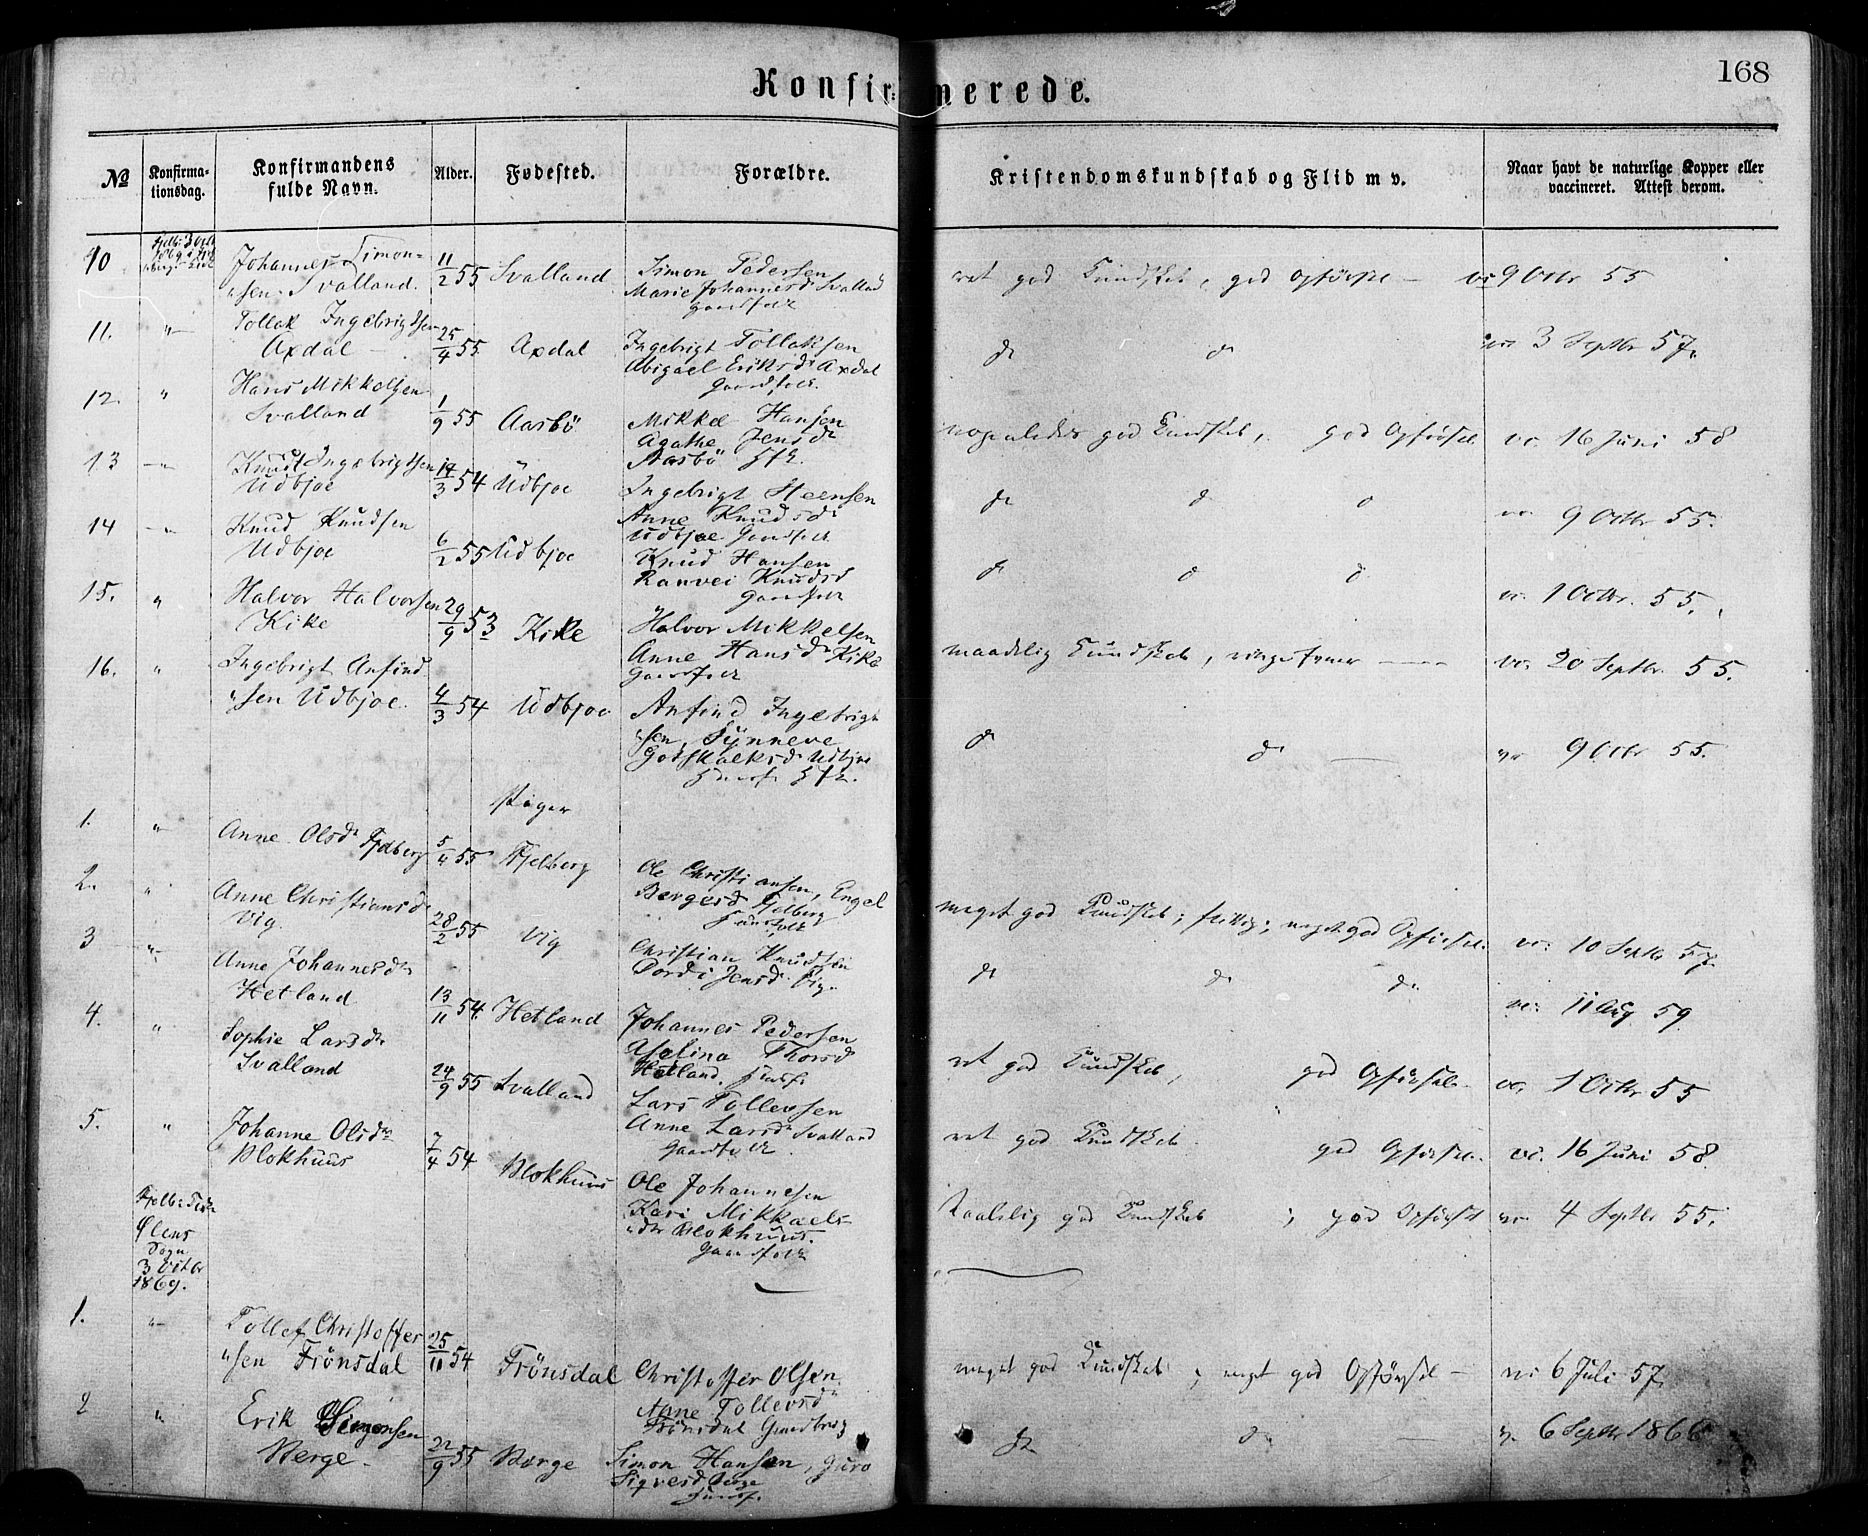 168
Konfirmerede.
No
Konfirma-
tionsdag.
Konfirmandens
fulde Navn.
Alder.
Fødested.
Forældre.
Kristendomskundskab og Flid m v.
Naar havt de naturlige Kopper eller
vaccineret. Attest derom.
10
Johannes Simon-
"sen Svalland.
11/2 55
Svalland
Simon Pedersen
Marie Johannesdr Svalland
Gaardfolk
ret god Kundskab, god Opførsel —
vc 9 Octr 55
11. "
Tollak Ingebrigtsen
Axdal
25/4 55
Axdal
Ingebrigt Tollaksen
Abigael Eriksdr Axdal
Gaardfolk
do do
vc 3 Septbr 57.
12. "
Hans Mikkelsen
Svalland
1/9 55
Aasbö
Mikkel Hansen
Agathe Jensdr
Aasbö
nogenledes god Kundskab, god Opførsel
vc. 16 Juni 58
13 "
Knud Ingebrigtsen
Udbjoe
14/3 54
Udbjoe
Ingebrigt Steensen
Anne Knudsdr
Udbjoe Gaardfolk
do do do
vc. 9 Octbr 55.
14 "
Knud Knudsen
Udbjoe
6/2 55
Udbjoe
Knud Hansen
Ranvei Knudsd
Gaardfolk
do do do
vc. 1 Octbr. 55.
15. "
Halvor Halvorsen
Kike
29/9 53
Kike
Halvor Mikkelsen
Anne Hansdr Kike
Gaardfolk
maadelig Kundskab,
vc. 20 Septbr. 55.
16. "
Ingebrigt Anfind
"sen Udbjoe.
4/3 54
Udbjoe
Anfind Ingebrigt
"sen, Synneve
Godskalksdr Udbjoe
do do —
vc 9 Octbr 55.
Piger
1. "
Anne Olsdr Fjelberg
5/4 55
Fjelberg
Ole Christiansen, Engel
Bergesd Fjelberg
meget god Kundskab; flittig; meget god Opførsel.
vc. 10 Septbr 57.
2. "
Anne Christiansdr
Vig.
28/2 55
Vig
Christian Knudsen
Dordi Jensdr Vig.
do do do
vc. 11 Aug 59
3 "
Anne Johannesdr
Hetland
13/11 54.
Hetland
Johannes Pedersen
Aselina Thorsd
Hetland.
ret god Kundskab, god Opførsel
vc. 1 Octbr 55
4. "
Sophie Larsdr
Svalland
24/9 55
Svalland
Lars Tollevsen
Anne Larsdr Svalland
Gaardfolk.
ret god Kundskab. god Opførsel.
vc. 16 Juni 58.
5. "
Johanne Olsdr
Blokhuus
7/4 54
Blokhuus
Ole Johannesen
Kari Mikkaels-
"dr Blokhuus.
Gaardfolk
Taalelig god Kundskab; god Opførsel
vc. 4 Septbr 55.
Ølens
Sogn
3 Octbr
1869.
1. "
Tollef Christoffer
"sen Frönsdal
25/11 54
Frönsdal
Christoffer Olsen.
Anne Tollevsdr
Frönsdal
meget god Kundskab; meget god Opførsel —
vc 6 Juli 57.
2 "
Erik Simonsen
Berge.
22/9 55
Berge
Simon Hansen, Guro
Sigvesd Berge
do do —
6 Septbr 1866